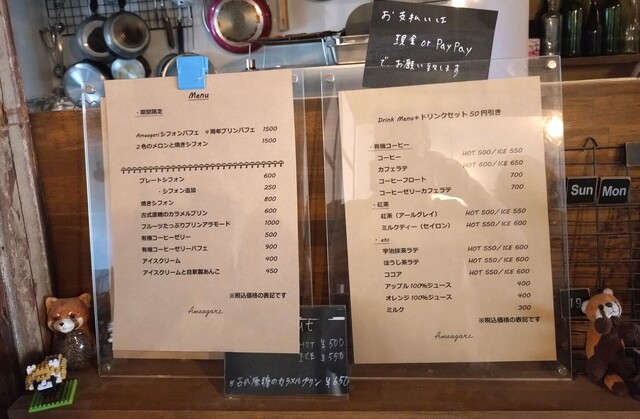 お支払いは
現金 or PayPay
でお願い致します
Menu
・期間限定
Amaagari シフォンパフェ 4周年プリンパフェ 1500
2色のメロンと焼きシフォン 1500
プレートシフォン 600
・シフォン追加 250
焼きシフォン 800
古式原糖のカラメルプリン 600
フルーツたっぷりプリンアラモード 1000
有機コーヒーゼリー 500
有機コーヒーゼリーパフェ 900
アイスクリーム 400
アイスクリームと自家製あんこ 450
※税込価格の表記です
Amaagari
Drink Menu*ドリンクセット50円引き
・有機コーヒー
コーヒー HOT 500/ICE 550
カフェラテ HOT 600/ICE 650
コーヒーフロート 700
コーヒーゼリーカフェラテ 700
・紅茶
紅茶（アールグレイ） HOT 500/ICE 550
ミルクティー（セイロン） HOT 550/ICE 600
・etc
宇治抹茶ラテ HOT 550/ICE 600
ほうじ茶ラテ HOT 550/ICE 600
ココア HOT 550/ICE 600
アップル100%ジュース 400
オレンジ100%ジュース 400
ミルク 300
※税込価格の表記です
Amaagari
HOT ¥500
ICE ¥550
古式原糖のカラメルプリン ¥650
Sun Mon